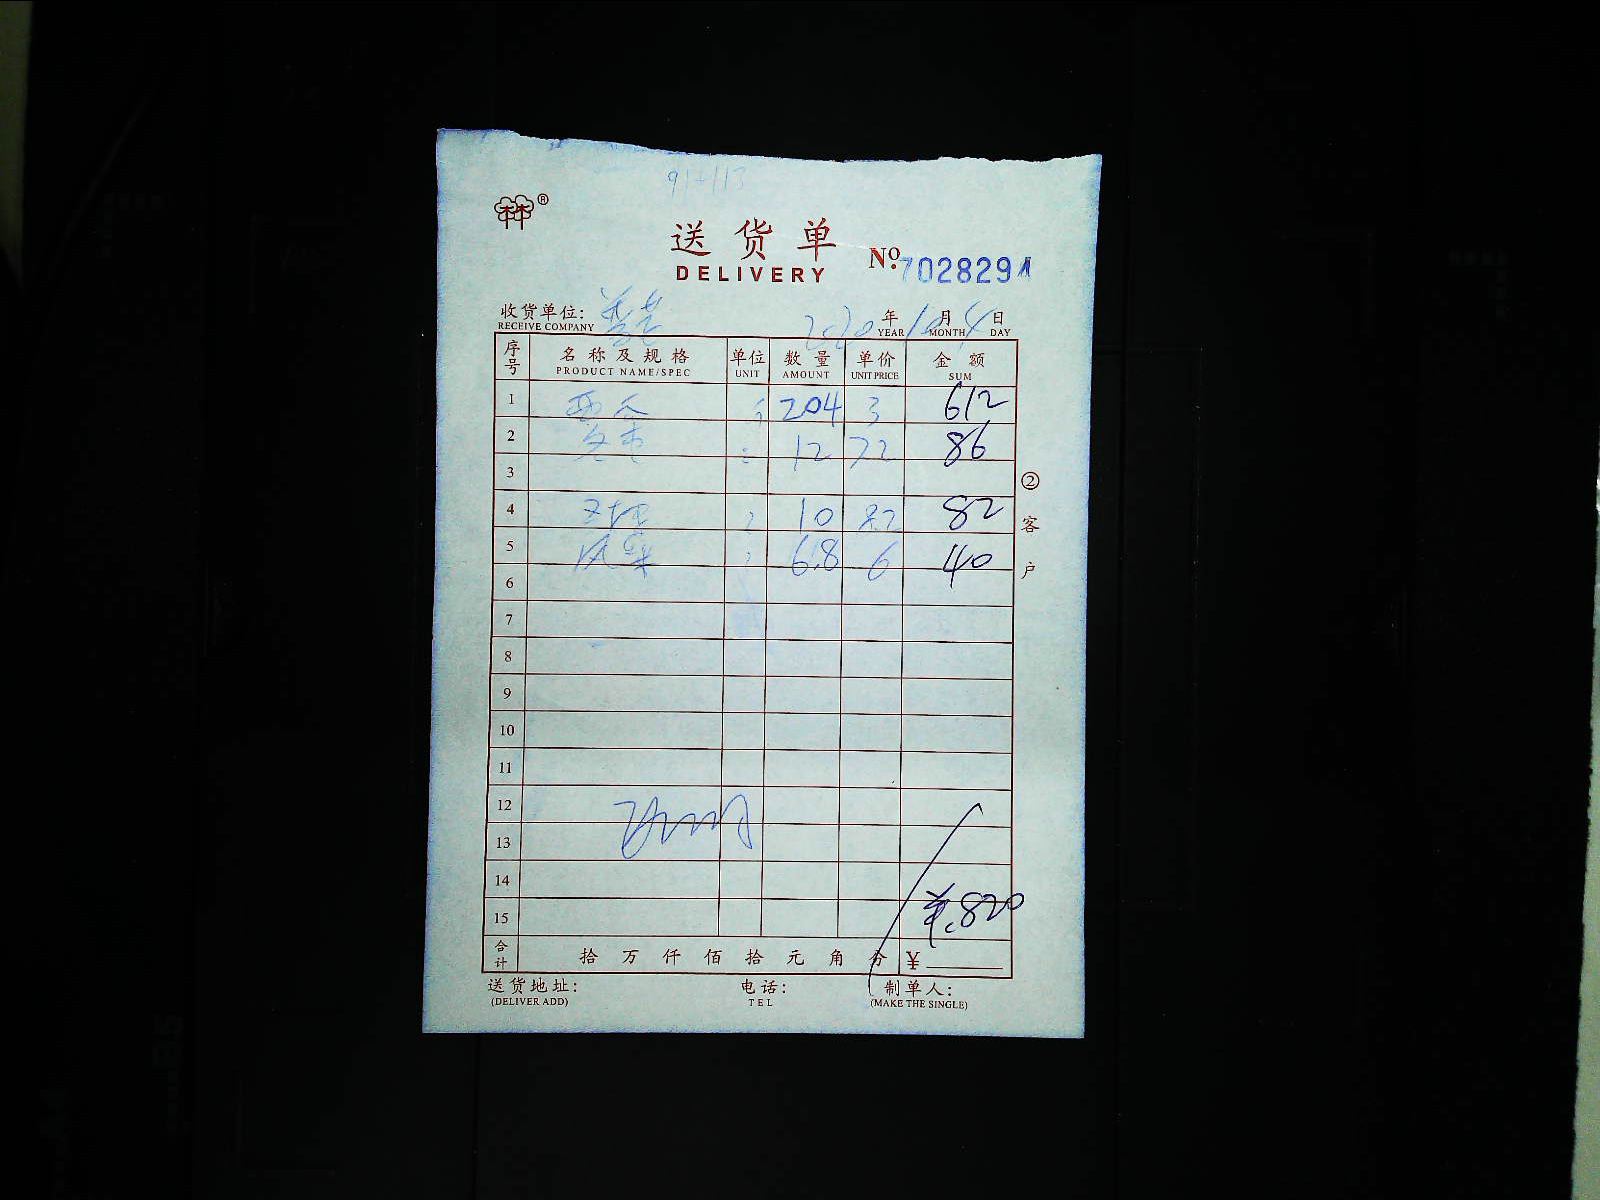 91+113
林®
送货单
DELIVERY
№ 7028291
收货单位: 2020年10月4日
RECEIVE COMPANY YEAR MONTH DAY
序号 名称及规格 单位 数量 单价 金额
PRODUCT NAME/SPEC UNIT AMOUNT UNIT PRICE SUM
1 西 204 3 612
2 12 72 86
3
4 10 82 82
5 风 6.8 6 40
6
7
8
9
10
11
12
13
14
15 ¥:820
合计 拾 万 仟 佰 拾 元 角 分 ¥
送货地址: 电话: 制单人:
(DELIVER ADD) TEL (MAKE THE SINGLE)
②客户